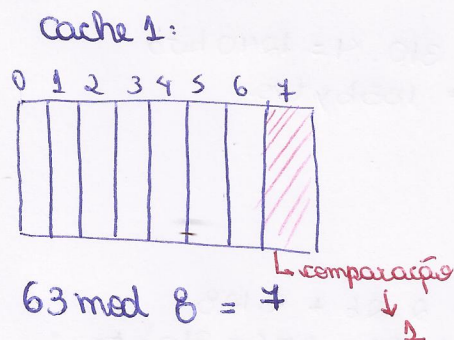 Cache 1:
0 1 2 3 4 5 6 7
↳ comparação
↓
1
63 mod 8 = 7